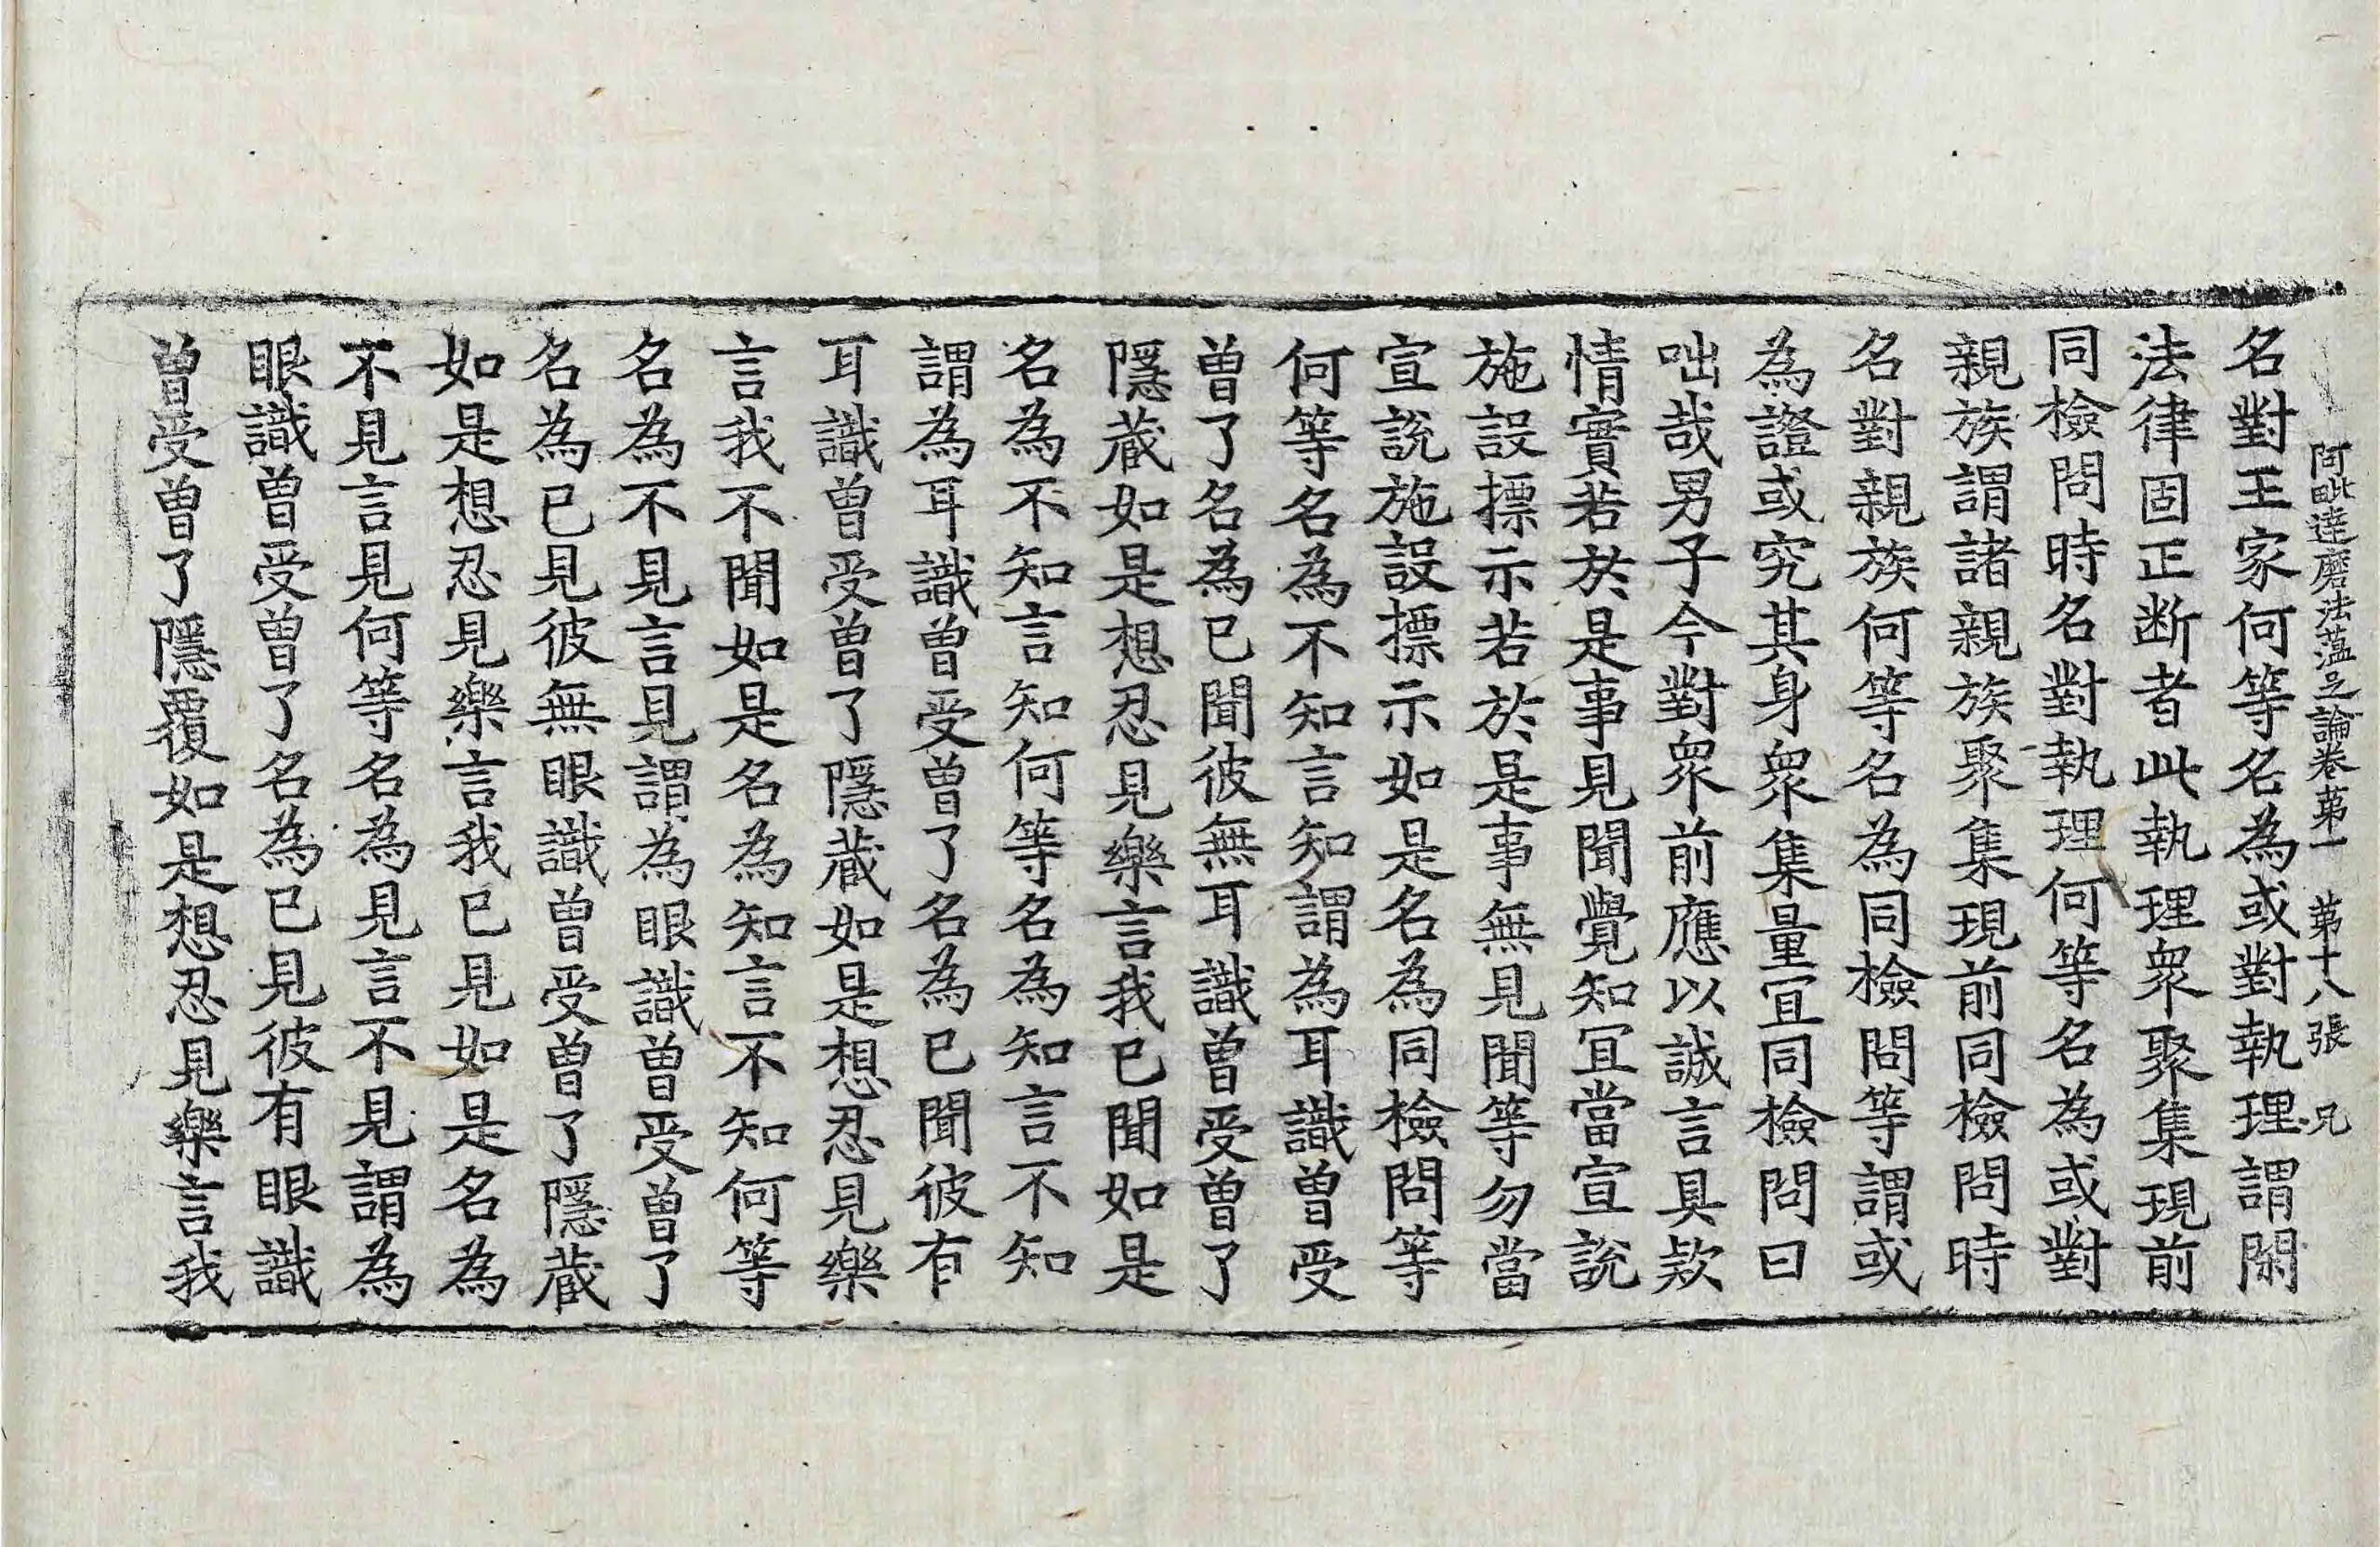 阿毗達磨法蘊足論卷苐一 苐十八張 兄
名對王家何等名為或對執理謂閑
法律固正断者此執理衆聚集現前
同檢問時名對執理何等名為或對
親族謂諸親族聚集現前同檢問時
名對親族何等名為同檢問等謂或
為證或究其身衆集量宜同檢問曰
咄哉男子今對衆前應以誠言具款
情實若於是事見聞覺知宜當宣說
施設摽示若於是事無見聞等勿當
宣說施設摽示如是名為同檢問等
何等名為不知言知謂為耳識曾受
曾了名為已聞彼無耳識曾受曾了
隱蔵如是想忍見樂言我已聞如是
名為不知言知何等名為知言不知
謂為耳識曾受曾了名為已聞彼有
耳識曾受曾了隱蔵如是想忍見樂
言我不聞如是名為知言不知何等
名為不見言見謂為眼識曾受曾了
名為已見彼無眼識曾受曾了隱蔵
如是想忍見樂言我已見如是名為
不見言見何等名為見言不見謂為
眼識曾受曾了名為已見彼有眼識
曾受曾了隱覆如是想忍見樂言我